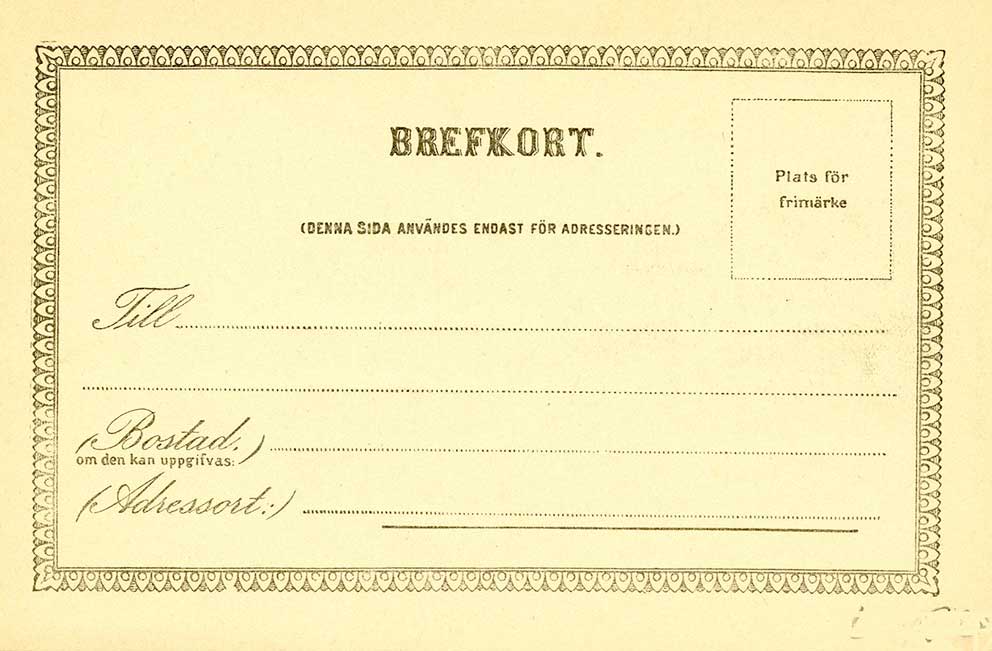 BREFKORT.
Plats för
frimärke
(DENNA SIDA ANVÄNDES ENDAST FÖR ADRESSERINGEN.)
Till
(Bostad.)
om den kan uppgifvas:
(Adressort:)